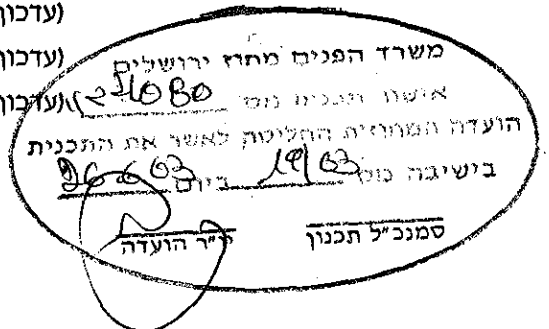 (עדכון
(עדכון
(עדכון
משרד הפנים מחוז ירושלים
אישור תכנית מס׳
הועדה המחוזית החליטה לאשר את התכנית
בישיבה מס׳ 19/03 ביום 26.6.03
סמנכ״ל תכנון
יו״ר הועדה